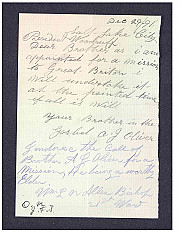 Dec 29/91
Salt Lake City
President
Dear Brother as i am
appointed for a mission
to Great Briten i
Will undertake it
at the pointed time
if all is Well
your Brother in the
Gosbel A J Oliver
I endorse the Call of
Brother A J Oliver for a
Mission, He being a worthy
Elder
Wm L N Allen Bishop
21st Ward
O.K.
J.F.S.